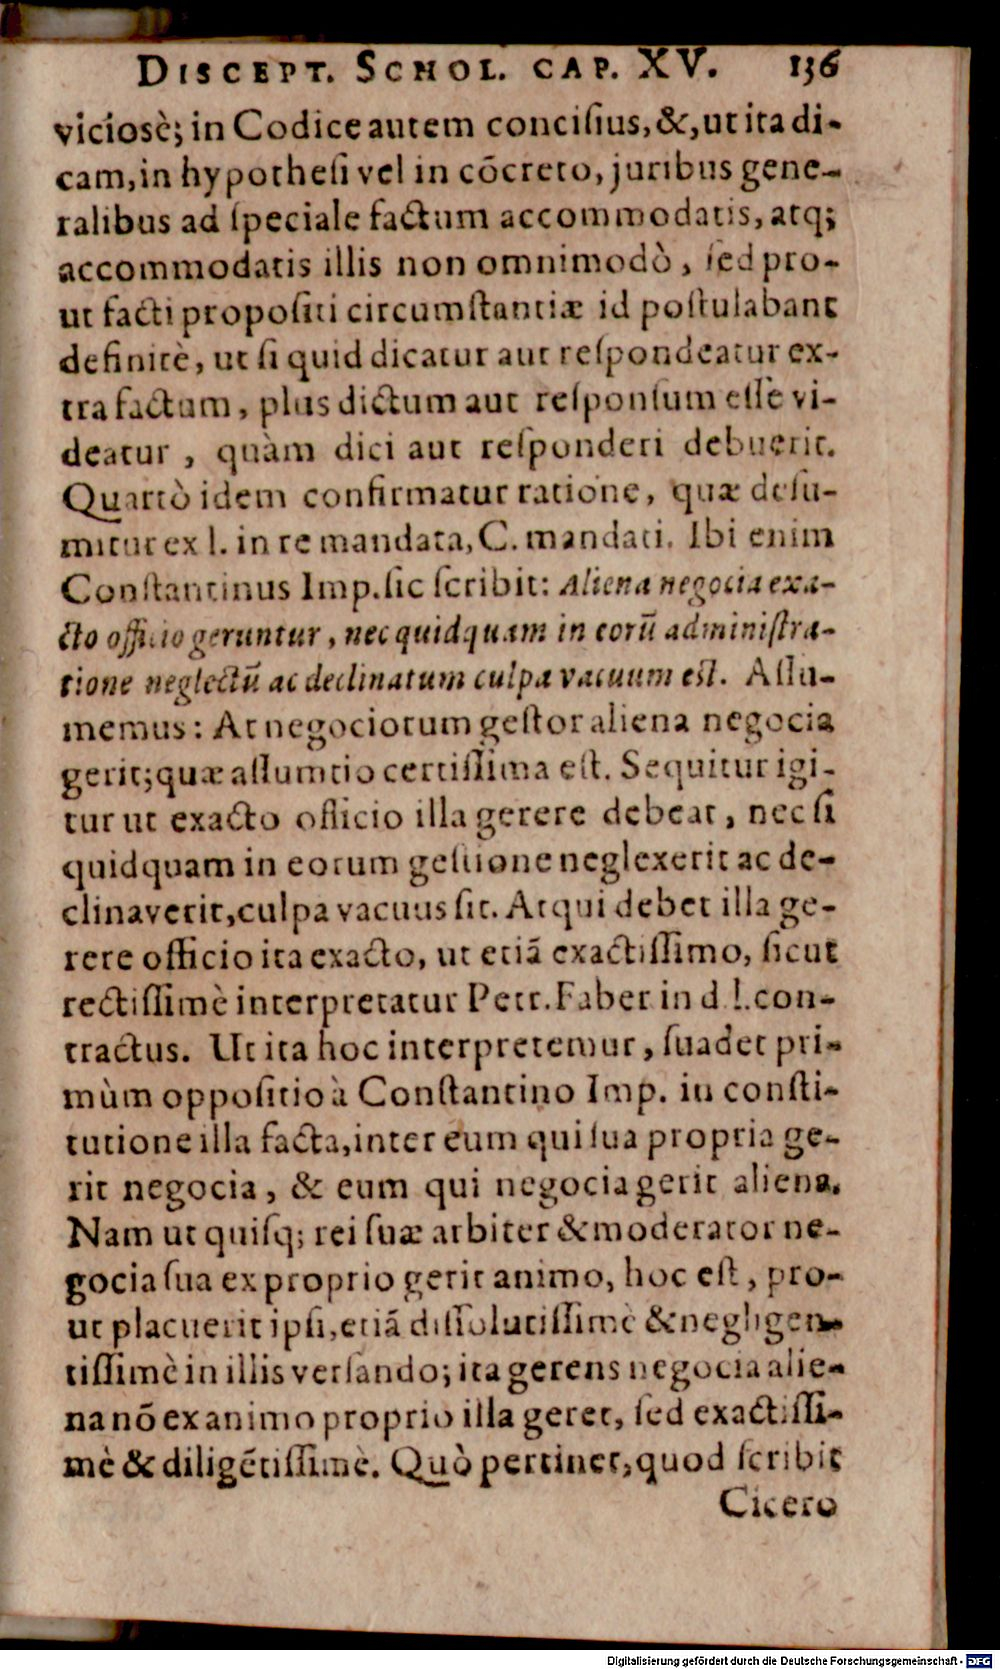 DISCEPT. SCHOL. CAP. XV. 136
viciosè; in Codice autem concisius, &, ut ita di-
cam, in hypothesi vel in cōcreto, juribus gene-
ralibus ad speciale factum accommodatis, atq;
accommodatis illis non omnimodò, sed pro-
ut facti propositi circumstantiæ id postulabant
definitè, ut si quid dicatur aut respondeatur ex-
tra factum, plus dictum aut responsum esse vi-
deatur, quàm dici aut responderi debuerit.
Quartò idem confirmatur ratione, quæ desu-
mitur ex l. in re mandata, C. mandati. Ibi enim
Constantinus Imp. sic scribit: Aliena negocia exa-
cto officio geruntur, nec quidquam in eorū administra-
tione neglectū ac declinatum culpa vacuum est. Assu-
memus: At negociorum gestor aliena negocia
gerit; quæ assumtio certissima est. Sequitur igi-
tur ut exacto officio illa gerere debeat, nec si
quidquam in eorum gestione neglexerit ac de-
clinaverit, culpa vacuus sit. Atqui debet illa ge-
rere officio ita exacto, ut etiā exactissimo, sicut
rectissimè interpretatur Petr. Faber in d. l. con-
tractus. Ut ita hoc interpretemur, suadet pri-
mùm oppositio à Constantino Imp. in consti-
tutione illa facta, inter eum qui sua propria ge-
rit negocia, & eum qui negocia gerit aliena.
Nam ut quisq; rei suæ arbiter & moderator ne-
gocia sua ex proprio gerit animo, hoc est, pro-
ut placuerit ipsi, etiā dissolutissimè & negligen-
tissimè in illis versando; ita gerens negocia alie-
na nō ex animo proprio illa geret, sed exactissi-
mè & diligētissimè. Quò pertinet, quod scribit
Cicero
Digitalisierung gefördert durch die Deutsche Forschungsgemeinschaft - DFG